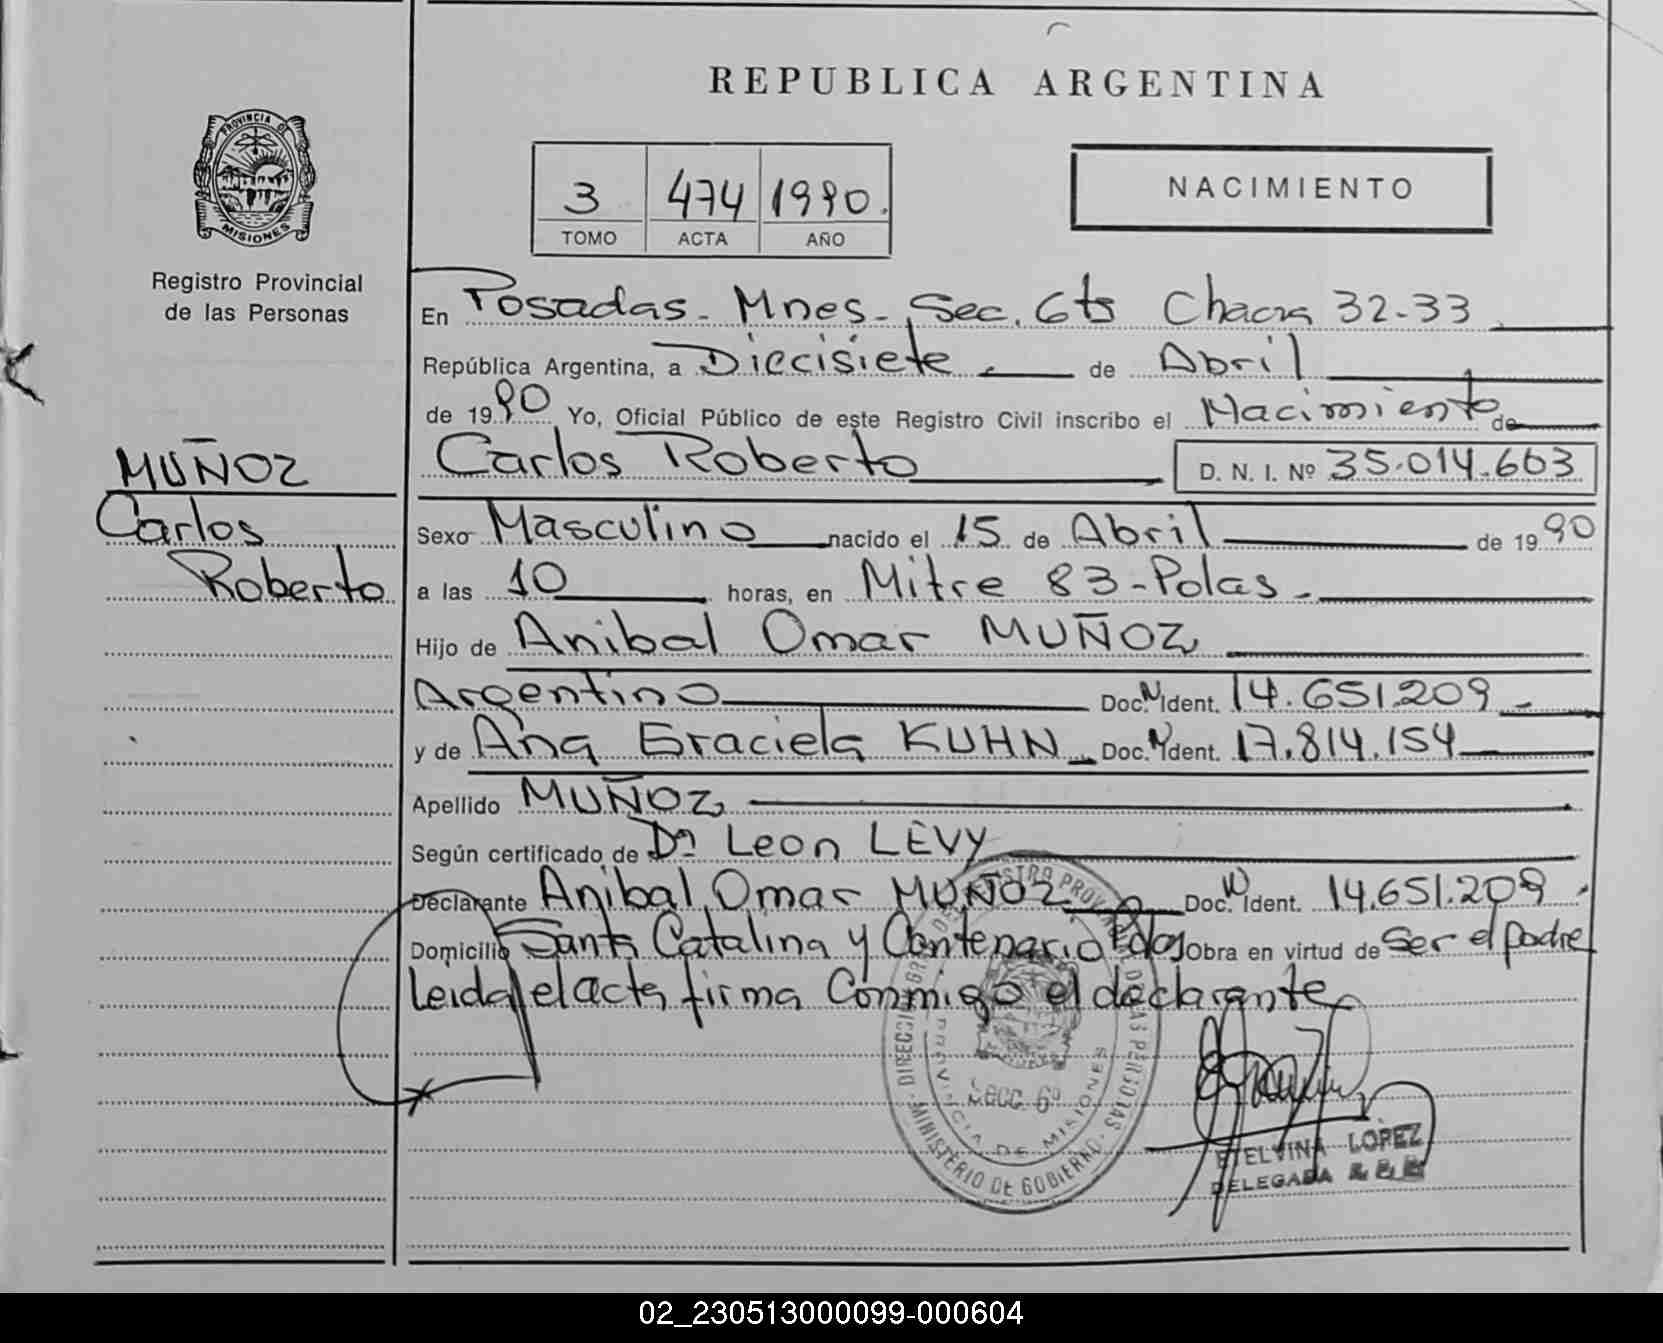 REPUBLICA ARGENTINA
PROVINCIA DE
MISIONES
Registro Provincial
de las Personas
3 474 1990.
TOMO ACTA AÑO
NACIMIENTO
En Posadas - Mnes - Sec. 6ta Chacra 32-33
República Argentina, a Diecisiete de Abril
de 1990 Yo, Oficial Público de este Registro Civil inscribo el Nacimiento de
Carlos Roberto D. N. I. Nº 35.014.663
MUÑOZ
Carlos
Roberto
Sexo Masculino nacido el 15 de Abril de 1990
a las 10 horas, en Mitre 83 - Pdas -
Hijo de Anibal Omar MUÑOZ
Argentino Doc. N Ident. 14.651.209 -
y de Ana Graciela KUHN Doc. N Ident. 17.814.154
Apellido MUÑOZ
Según certificado de Dr Leon LÈVY
Declarante Anibal Omar MUÑOZ Doc. N Ident. 14.651.209
Domicilio Santa Catalina y Centenario Pdas Obra en virtud de Ser el padre
Leida el acta firma Conmigo el declarante
SECC. 6º
PROVINCIA DE MISIONES
MINISTERIO DE GOBIERNO
ETELVINA LOPEZ
DELEGADA
02_230513000099-000604